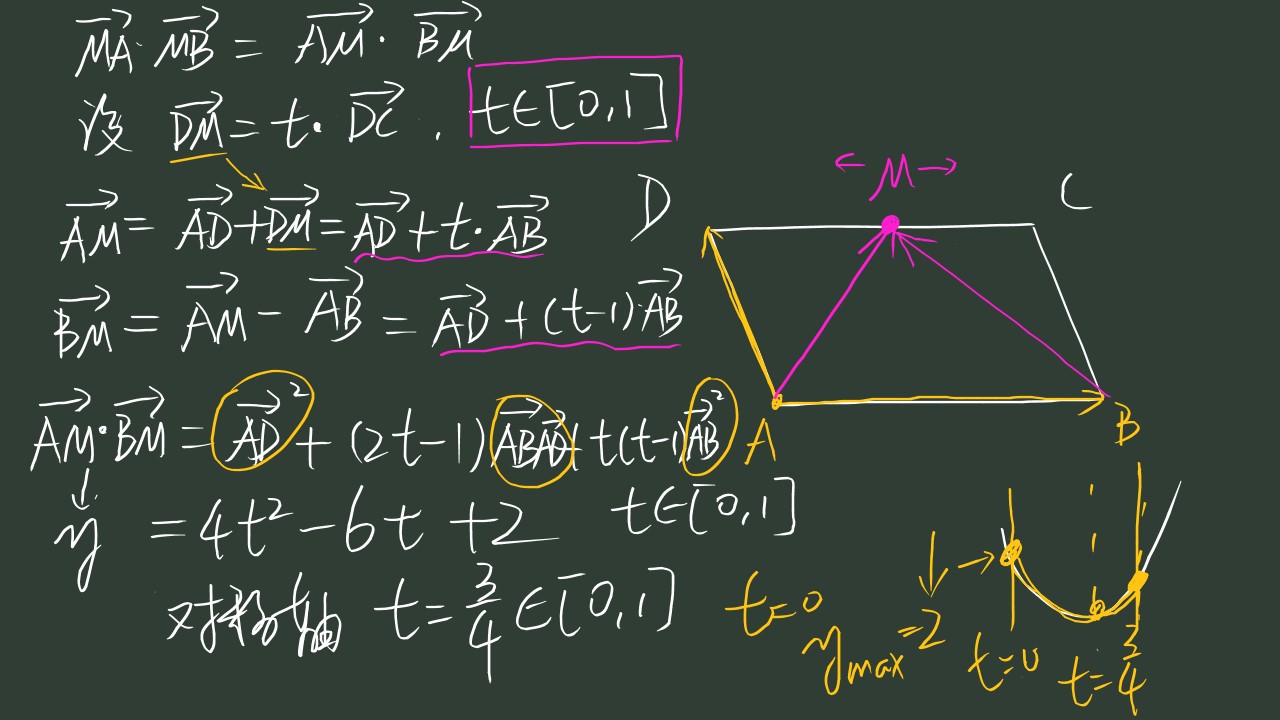 MA·MB = AM·BM
设 DM = t·DC. t∈[0,1]
AM = AD+DM = AD+t·AB
BM = AM-AB = AD+(t-1)AB
AM·BM = AD²+(2t-1)ABAD+t(t-1)AB²
y = 4t²-6t+2 t∈[0,1]
对称轴 t=3/4∈[0,1]
D
M
C
A
B
t=0
ymax=2
t=0
t=3/4